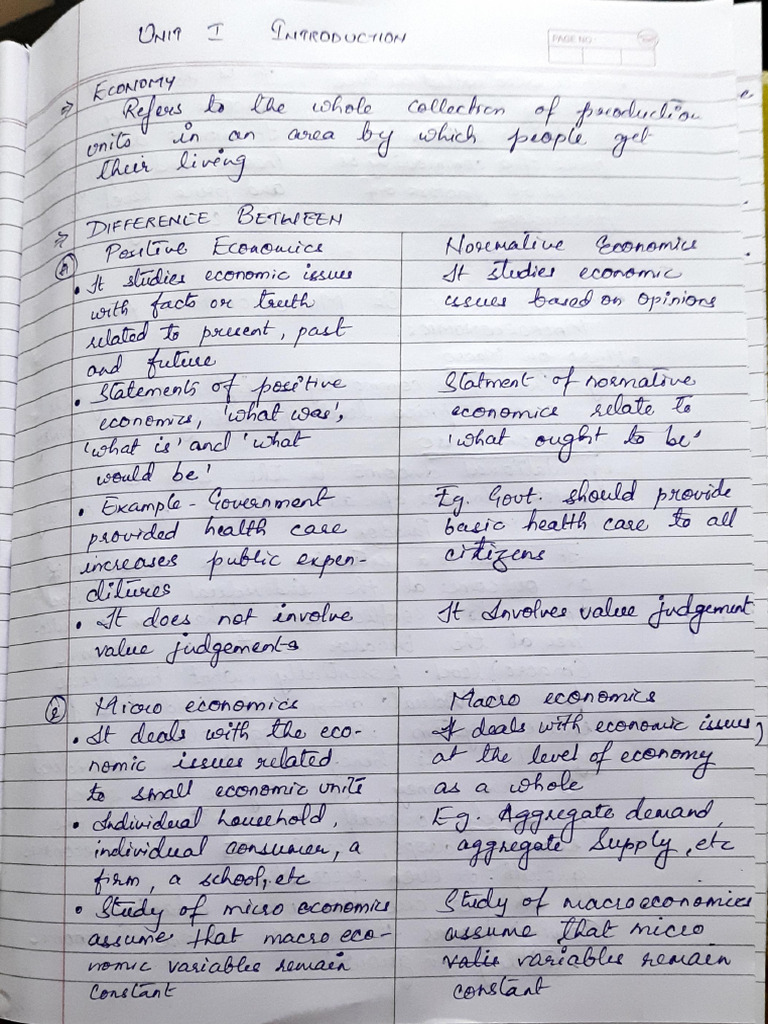 UNIT I INTRODUCTION
PAGE NO:
⇒ ECONOMY
Refers to the whole collection of production
units in an area by which people get
their living
⇒ DIFFERENCE BETWEEN
① Positive Economics
• It studies economic issues
with facts or truth
related to present, past
and future
• Statements of positive
economics, 'what was',
'what is' and 'what
would be'
• Example - Government
provided health care
increases public expen-
ditures
• It does not involve
value judgements
Normative Economics
It studies economic
issues based on opinions
Statment of normative
economics relate to
'what ought to be'
Eg. Govt. should provide
basic health care to all
citizens
It Involves value judgement
② Micro economics
• It deals with the eco-
nomic issues related
to small economic units
• Individual household,
individual consumer, a
firm, a school, etc
• Study of micro economics
assume that macro eco-
nomic variables remain
constant
Macro economics
It deals with economic issues,
at the level of economy
as a whole
Eg. Aggregate demand,
aggregate Supply, etc
Study of macroeconomics
assume that micro
variables remain
constant